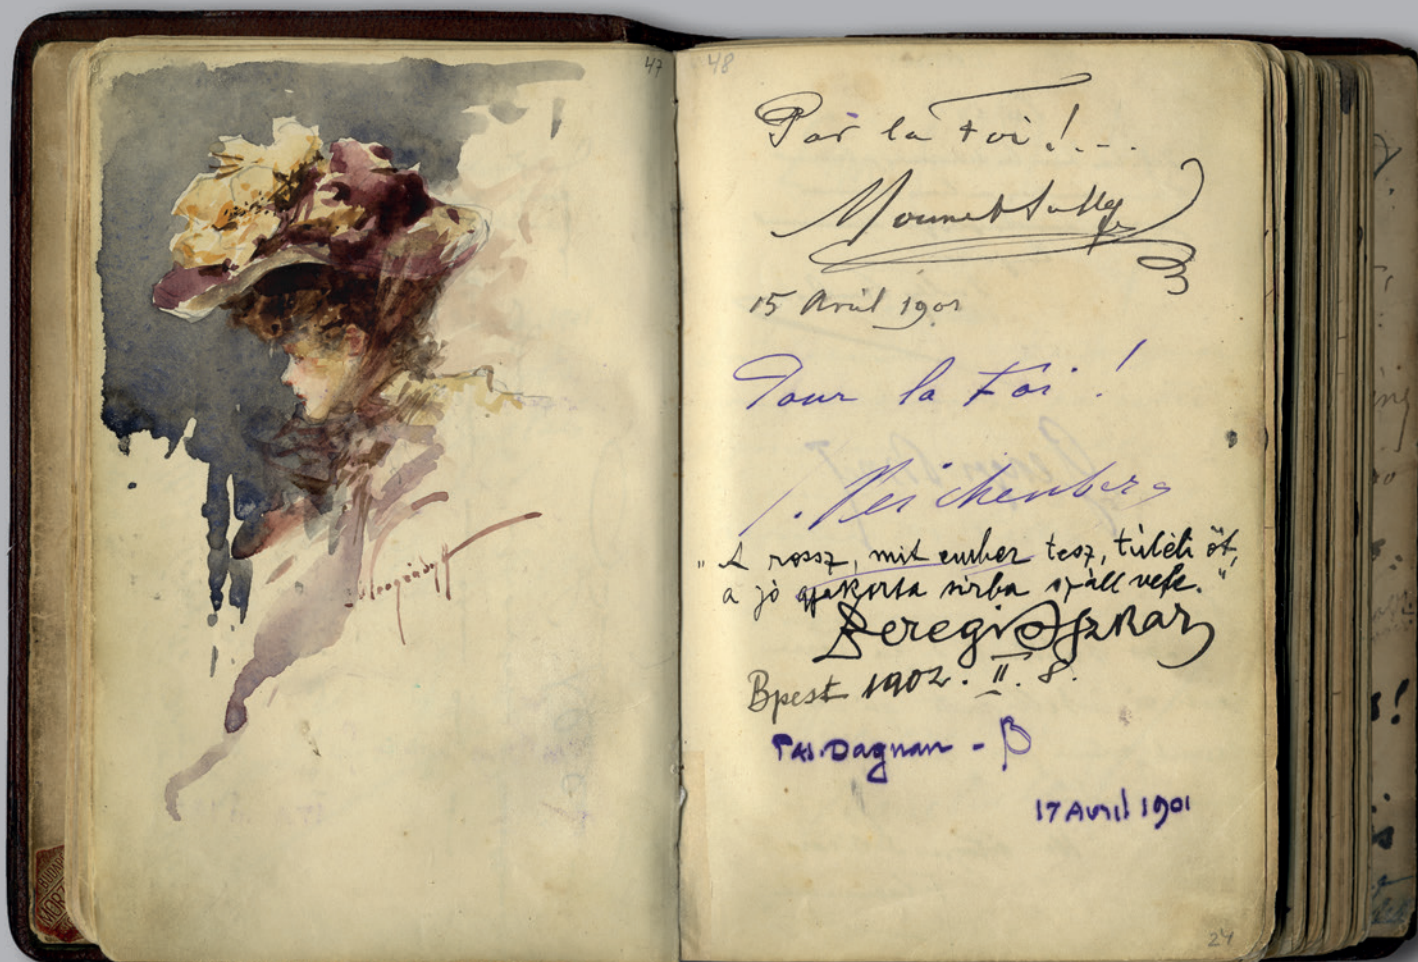 47
48
Par la Foi!...
Mounet Sully
15 Avril 1901
Pour la Foi!
J. Reichenberg
"A rossz, mit ember tesz, túléli őt,
a jó gyakorta sirba száll vele."
Beregi Oszkár
Bpest 1902. II. 8.
PAJ. Dagnan - B
17 Avril 1901
24
BUDAP